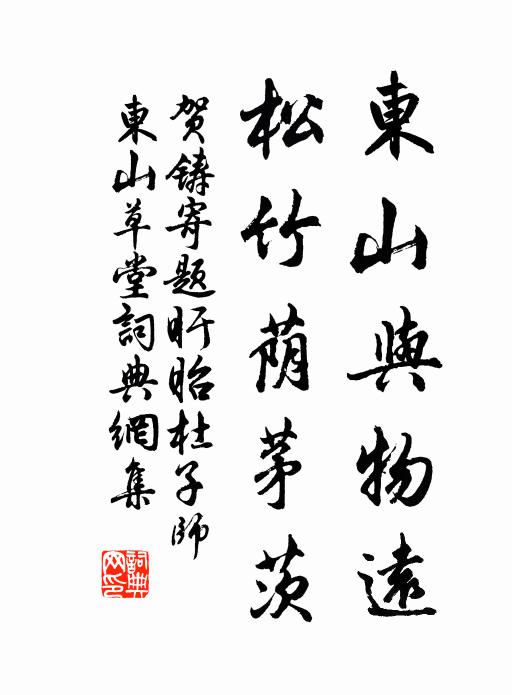 東山與物遠
松竹荫茅茨
贺铸寄题盱眙杜子師
東山草堂詞典網集
詞典网印